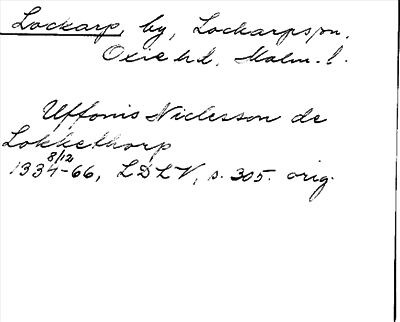 Lockarp, by, Lockarps sn.
Oxie hd, Malm. l.
Uffonis Niclesson de
Lokkethorp
8/12
1334-66, LDLV, s. 305. orig.